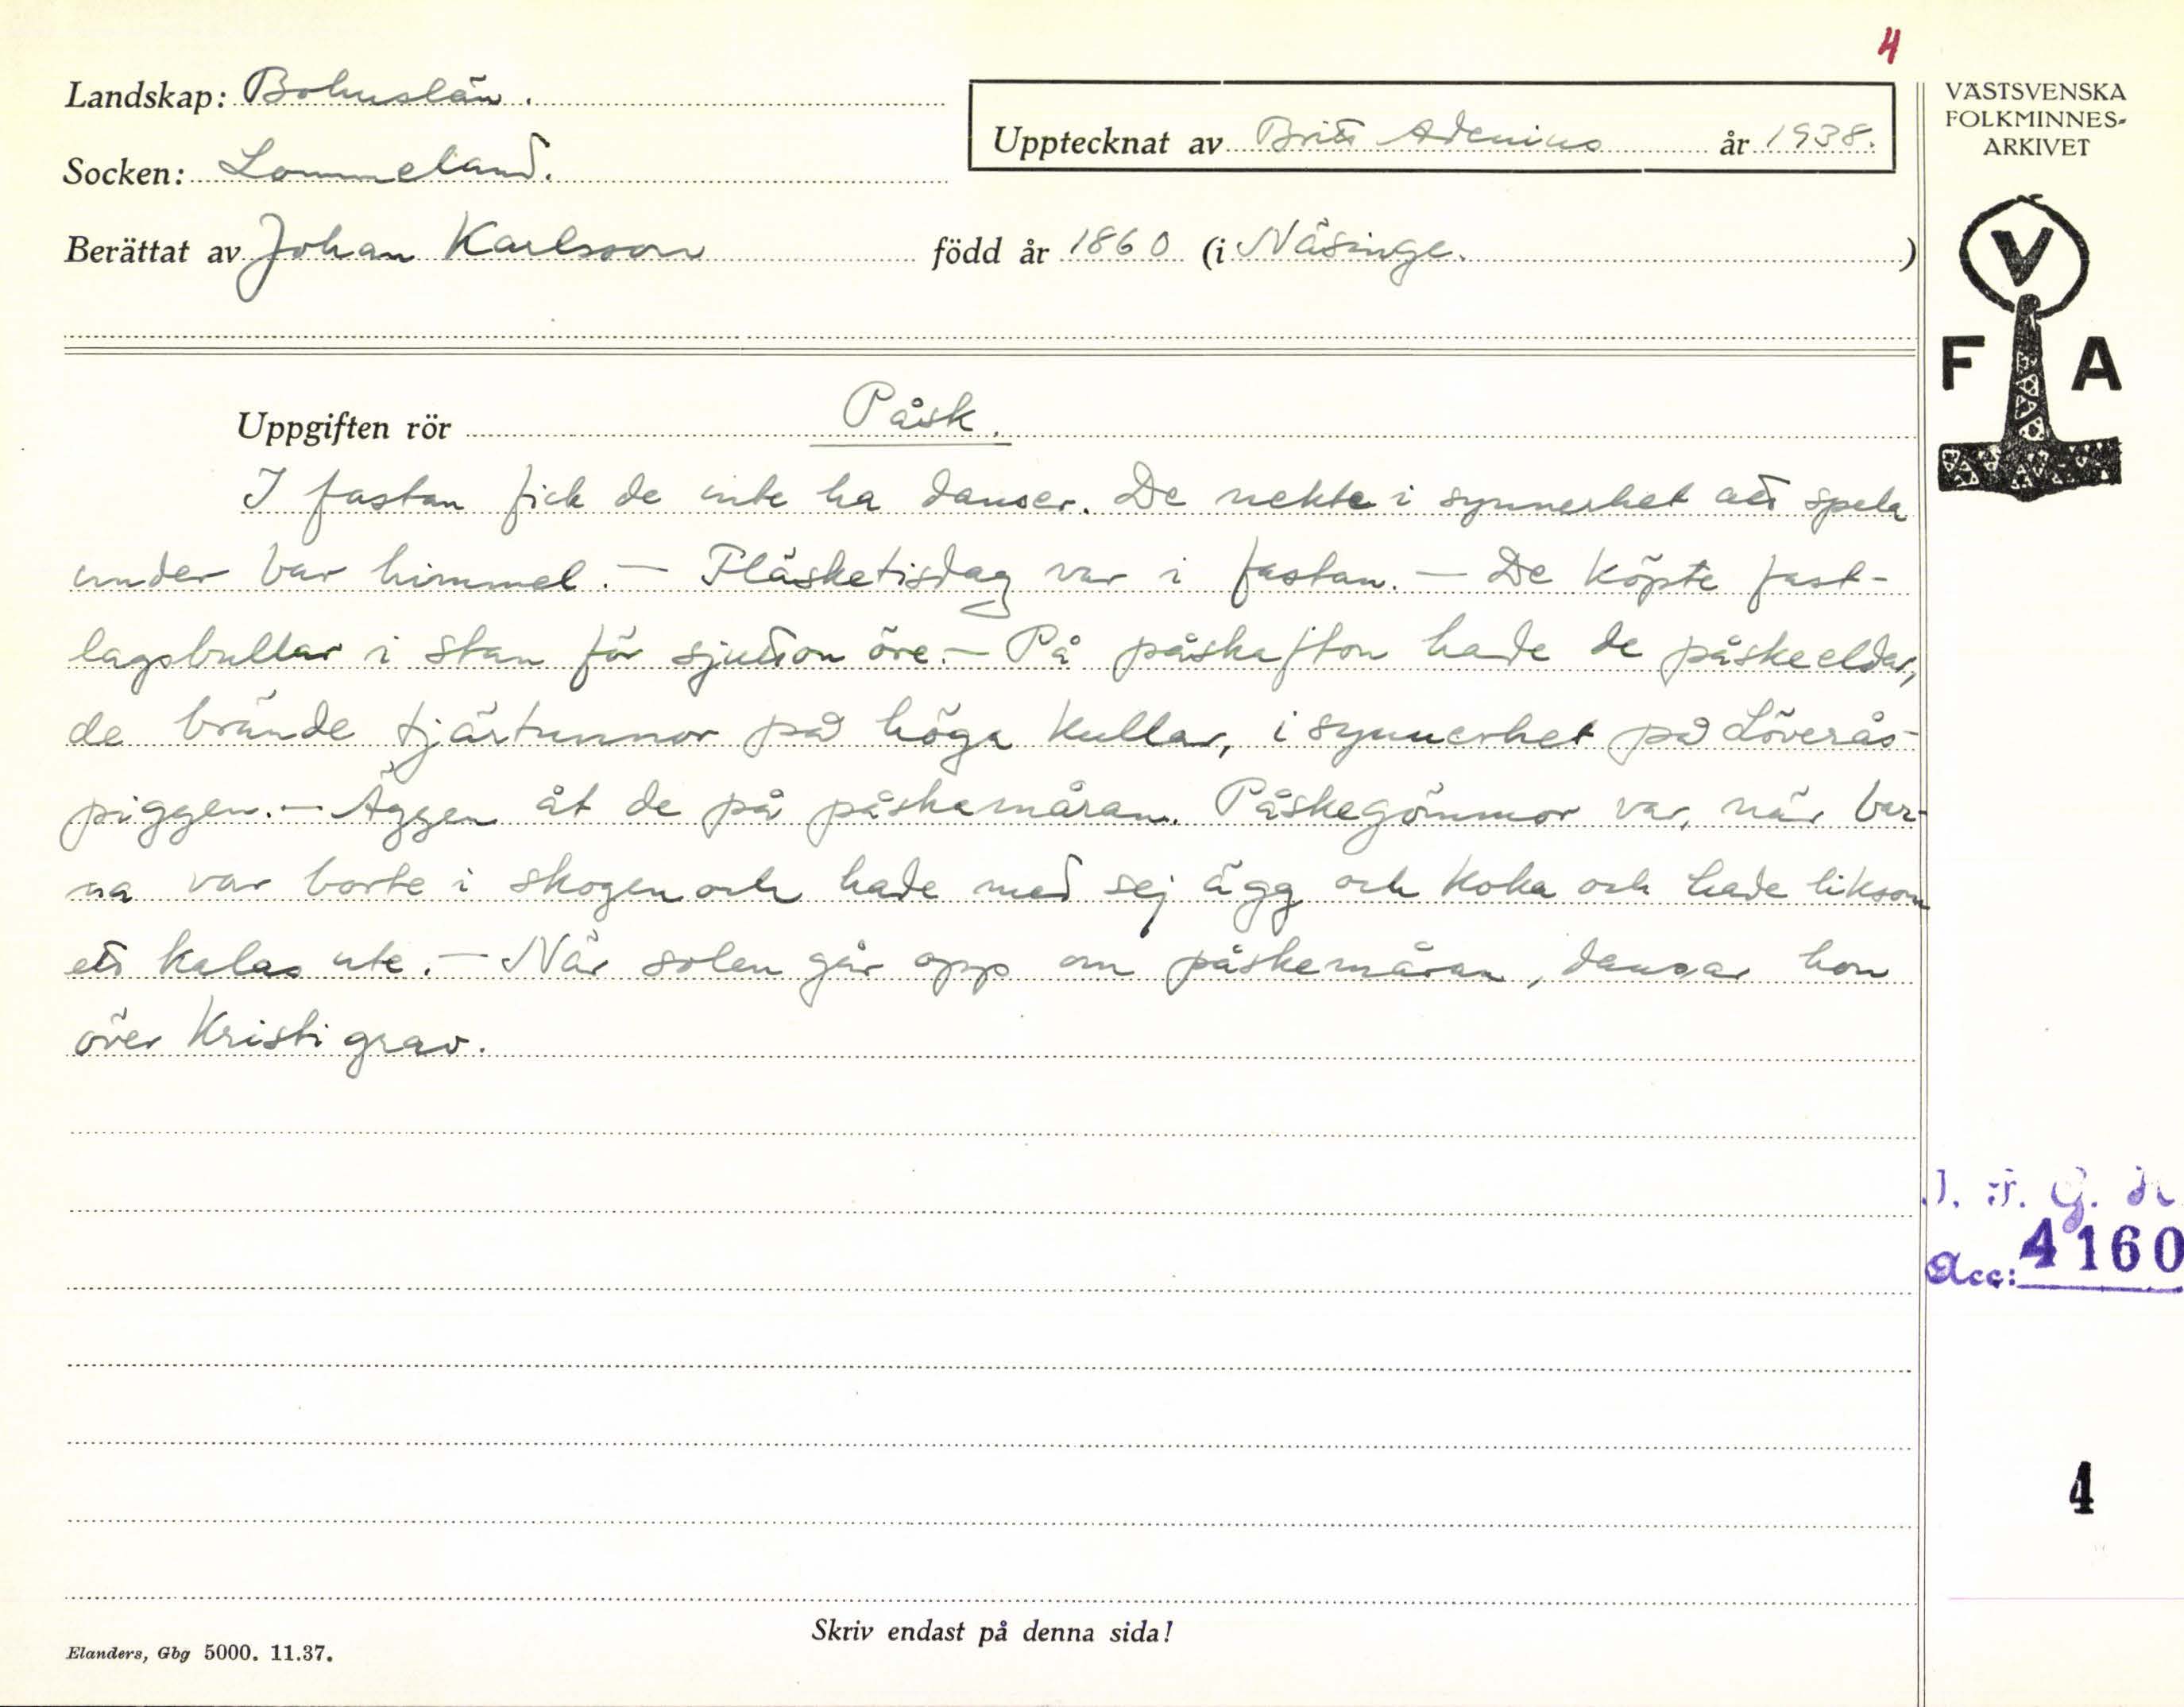 4
Landskap: Bohuslän.
Socken: Lommeland.
Upptecknat av Britt Adenius år 1938.
Berättat av Johan Karlsson född år 1860 (i Näsinge.)
VÄSTSVENSKA
FOLKMINNES-
ARKIVET
V
F A
Uppgiften rör Påsk.
I fastan fick de inte ha danser. De nekte i synnerhet att spela
under bar himmel. — Fläsketisdag var i fastan. — De köpte fast-
lagsbullar i stan för sjutton öre. — På påskafton hade de påskeeldar,
de brände tjärtunnor på höga kullar, i synnerhet på Löverås-
piggen. — Äggen åt de på påskemåran. Påskegömmor var, när bar-
na var borte i skogen och hade med sej ägg och koka och hade liksom
ett kalas ute. — När solen går opp om påskemåran, dansar hon
över Kristi grav.
Acc: 4160
4
Skriv endast på denna sida!
Elanders, Gbg 5000. 11.37.